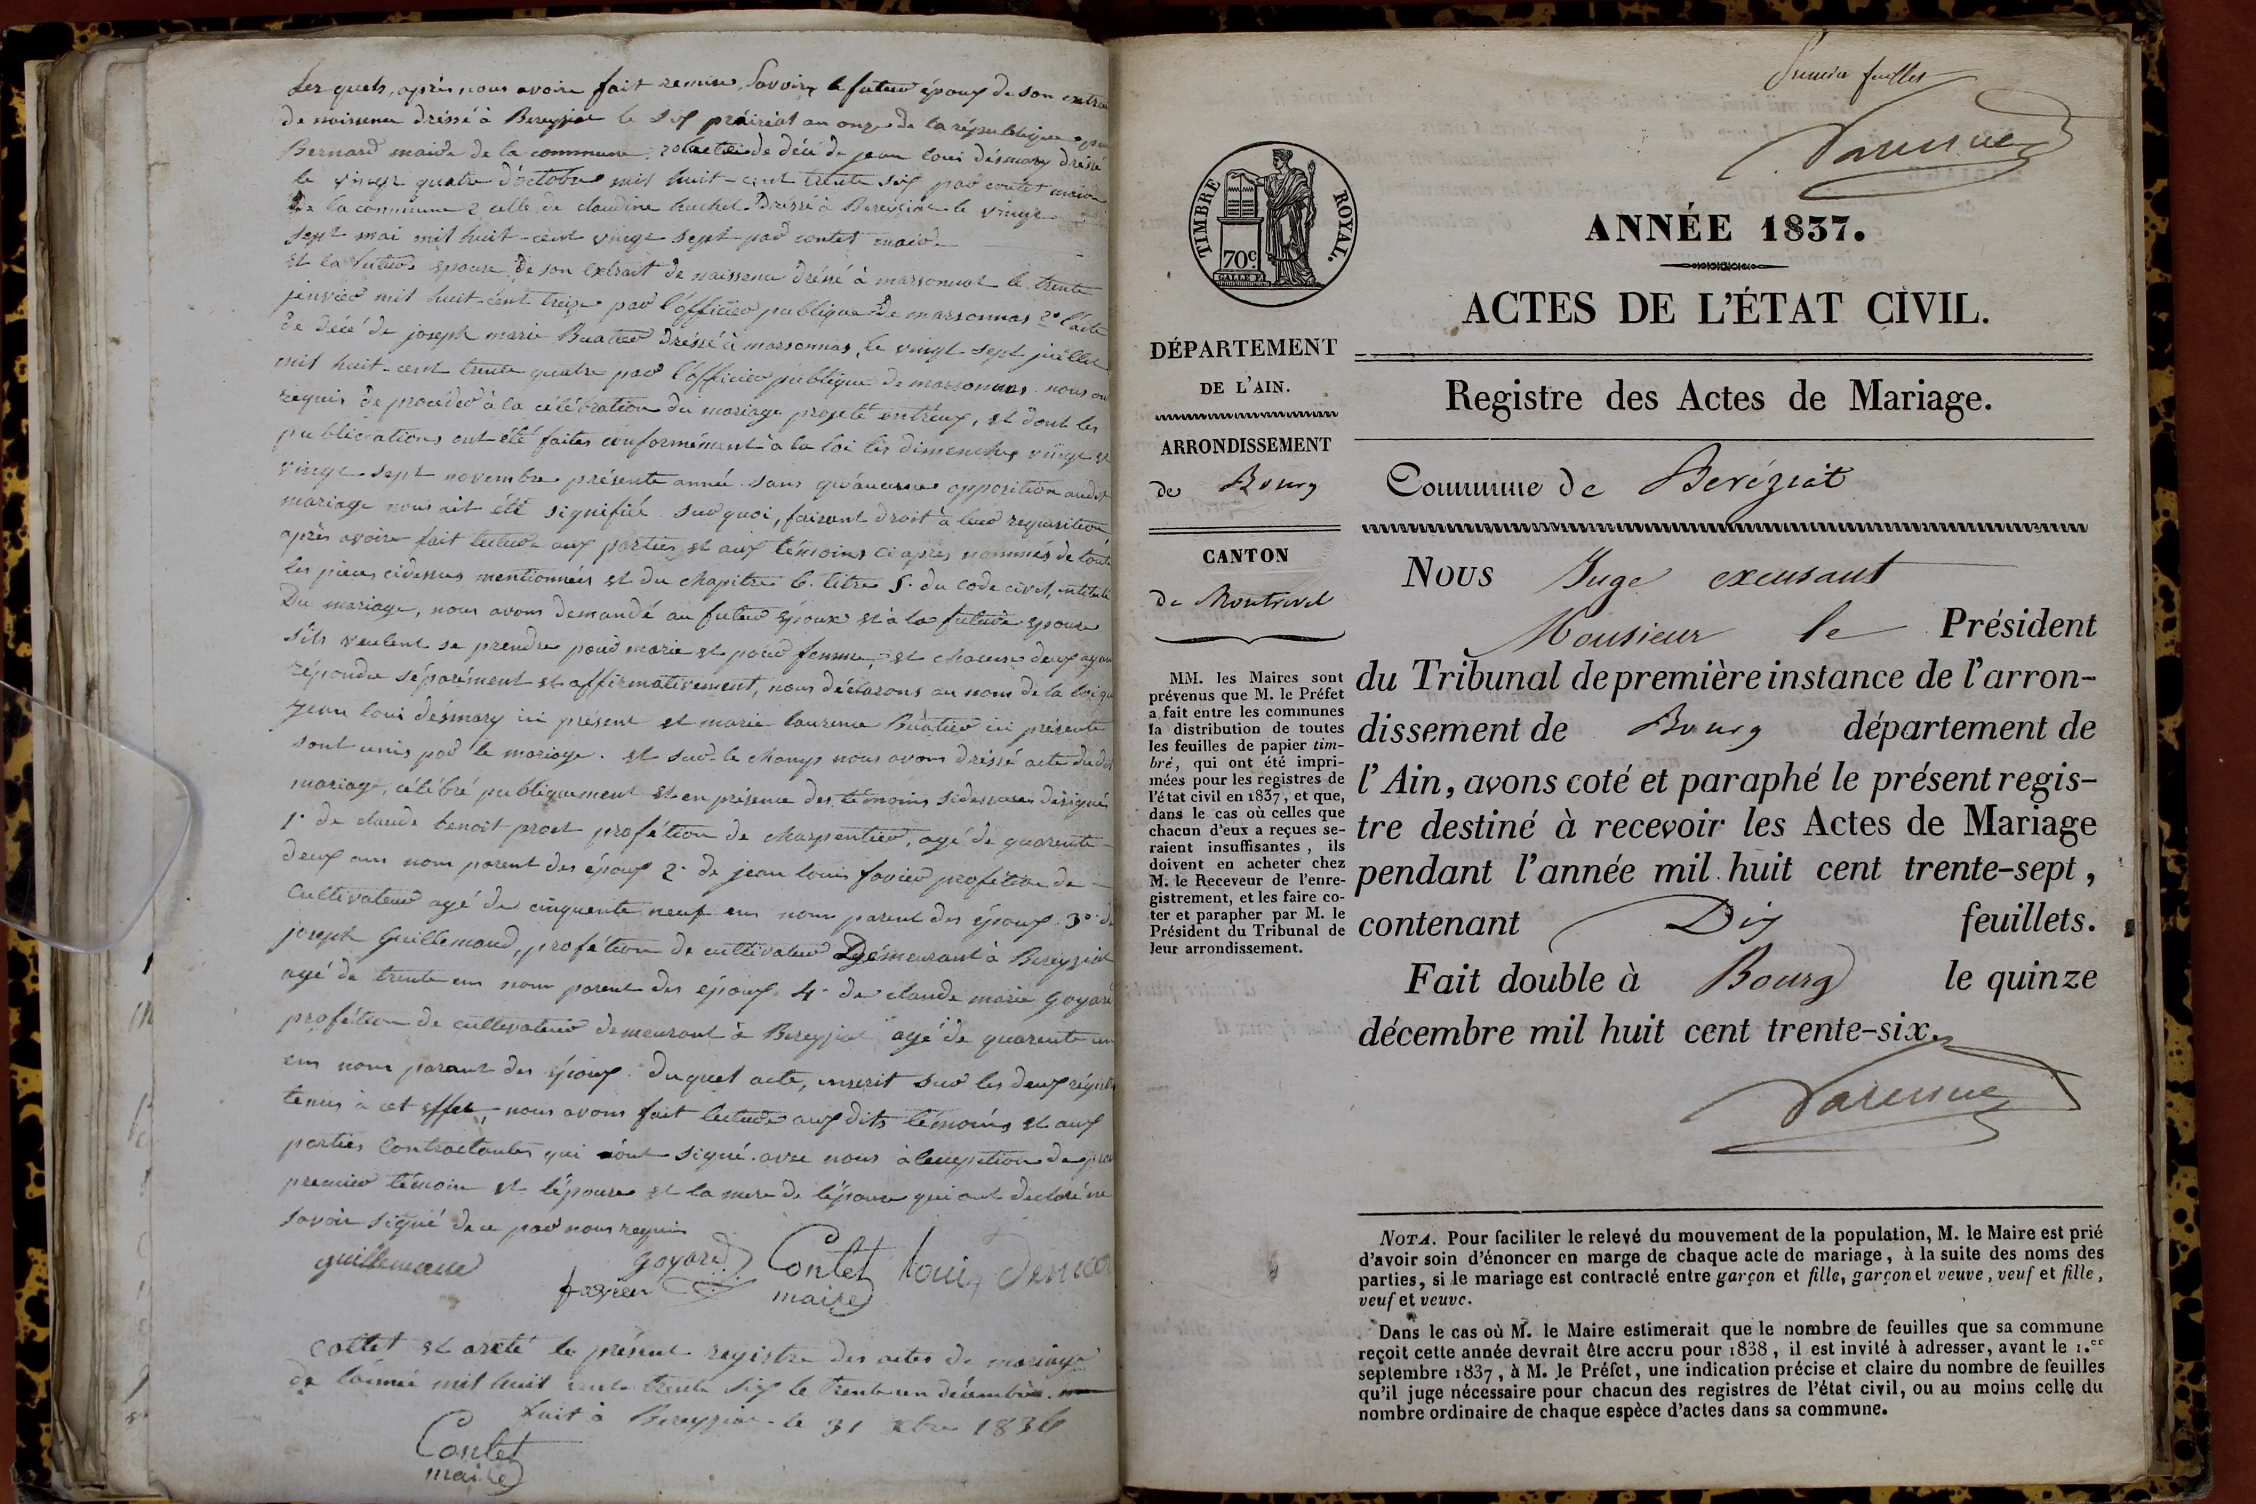 Lesquels, après nous avoire fait remise, savoire le futeur époux de son extrai
de naissence dréssé à Bereyziat le six prairéal an onze de la république
Bernard maire de la commune. 2° acte de déce de jean loui désmary dréssé
le vingt quatre d'octobre mil huit-cent trente six par contet maire
de la commune celle de claudine huchet dréssé à Bereyziat le vingt
sept mai mil huit-cent vingt sept par contet maire
et la future epouse, de son extrait de naissence dréssé à marsonnas le trente
jenvier mil huit-cent treize par l'officier publique de marsonnas 2° l'acte
de décé de joseph marie Buatier dréssé à marsonnas, le vingt sept juillet
mil huit-cent trente quatre par l'officier publique de marsonnas. nous on
requis de procéder à la célébration du mariage projeté entr'eux, et dont les
publications ont été faites conformément à la loi les dimenches vingt et
vingt-sept novembre présente année. sans qu'aucune opposition audit
mariage nous ait été signifiée. sur quoi, faisant droit à leur requisition
après avoire fait lecture aux parties et aux témoins ci après nommés de toute
les pieces cidessus mentionnées et du chapitre 6. titre 5. du code civil, intitulé
Du mariage, nous avons demandé au futeur époux et à la future épouse
s'ils veulent se prendre pour marie et pour femme, et chacun deux ayan
répondu séparément et affirmativement, nous déclarons au nom de la loi que
jean loui désmary ici présent et marie laurence Buatier ici présente
sont unis par le mariage. et sur le champs nous avons dréssé acte dudit
mariage, célébré publiquement et en présence des témoins sidessus désignés
1° de claude benoit prost profétion de charpentier, agé de quarente
deux ans non parent des époux 2° de jean louis favier profétion de
cultivateur agé de cinquente neuf ens non parent des époux. 3° de
joseph Guillemaud, profétion de cultivateur Démeurant à Bereyziat
agé de trente ens non parent des époux. 4° de claude marie Goyard
profétion de cultivateur demeurant à Bereyziat agé de quarente un
ens non parent des époux. duquel acte, inscrit sur les deux régistr
tenus à cet effet, nous avons fait lecture aux dits témoins et aux
parties contractantes qui ont signé avec nous à l'exception de
premier témoin et l'épouse et la mere de l'épouse qui ont declaré ne
savoir signé de ce par nous requis
guillemaud goyard Contet loui
favier maire
Collet et arété le présent registre des actes de mariage
de l'année mil huit cent trente six le trente un décembre.
fait à Bereyziat le 31 xbre 1836
Contet
maire
Premier feuillet
Varenne
TIMBRE ROYAL.
70 c.
GALLE F.
ANNÉE 1837.
ACTES DE L'ÉTAT CIVIL.
Registre des Actes de Mariage.
DÉPARTEMENT
DE L'AIN.
ARRONDISSEMENT
de Bourg
CANTON
de Montrevel
MM. les Maires sont
prévenus que M. le Préfet
a fait entre les communes
la distribution de toutes
les feuilles de papier tim-
bré, qui ont été impri-
mées pour les registres de
l'état civil en 1837, et que,
dans le cas où celles que
chacun d'eux a reçues se-
raient insuffisantes, ils
doivent en acheter chez
M. le Receveur de l'enre-
gistrement, et les faire co-
ter et parapher par M. le
Président du Tribunal de
leur arrondissement.
Commune de Beréziat
Nous Juge excusant
Monsieur le Président
du Tribunal de première instance de l'arron-
dissement de Bourg département de
l'Ain, avons coté et paraphé le présent regis-
tre destiné à recevoir les Actes de Mariage
pendant l'année mil huit cent trente-sept,
contenant Dix feuillets.
Fait double à Bourg le quinze
décembre mil huit cent trente-six.
Varenne
NOTA. Pour faciliter le relevé du mouvement de la population, M. le Maire est prié
d'avoir soin d'énoncer en marge de chaque acte de mariage, à la suite des noms des
parties, si le mariage est contracté entre garçon et fille, garçon et veuve, veuf et fille,
veuf et veuve.
Dans le cas où M. le Maire estimerait que le nombre de feuilles que sa commune
reçoit cette année devrait être accru pour 1838, il est invité à adresser, avant le 1.er
septembre 1837, à M. le Préfet, une indication précise et claire du nombre de feuilles
qu'il juge nécessaire pour chacun des registres de l'état civil, ou au moins celle du
nombre ordinaire de chaque espèce d'actes dans sa commune.